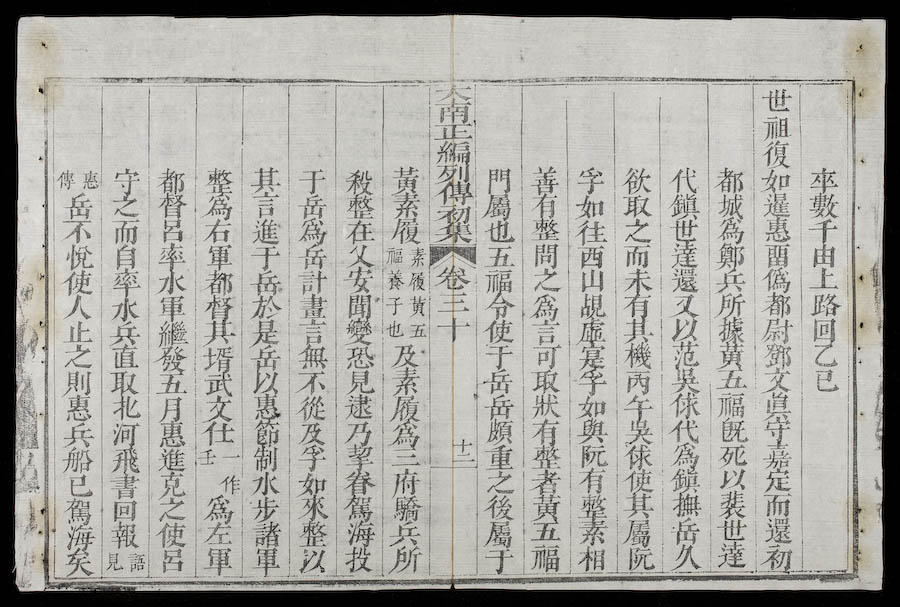 卒數千由上路回乙巳
世祖復如暹惠畱僞都尉鄧文眞守嘉定而還初
都城爲鄭兵所據黃五福旣死以裴世達
代鎮世達還又以范吳俅代爲鎮撫岳久
欲取之而未有其機丙午吳俅使其屬阮
孚如往西山覘虛寔孚如與阮有整素相
善有整問之爲言可取狀有整者黃五福
門屬也五福令使于岳岳頗重之後屬于
大南正編列傳初集 卷三十 十二
黃素履素履黃五福養子也及素履爲三府驕兵所
殺整在乂安聞變恐見逮乃挈眷駕海投
于岳爲岳計畫言無不從及孚如來整以
其言進于岳於是岳以惠節制水步諸軍
整爲右軍都督其壻武文仕一作壬爲左軍
都督呂率水軍繼發五月惠進克之使呂
守之而自率水兵直取北河飛書回報語見
惠傳岳不悅使人止之則惠兵船已駕海矣